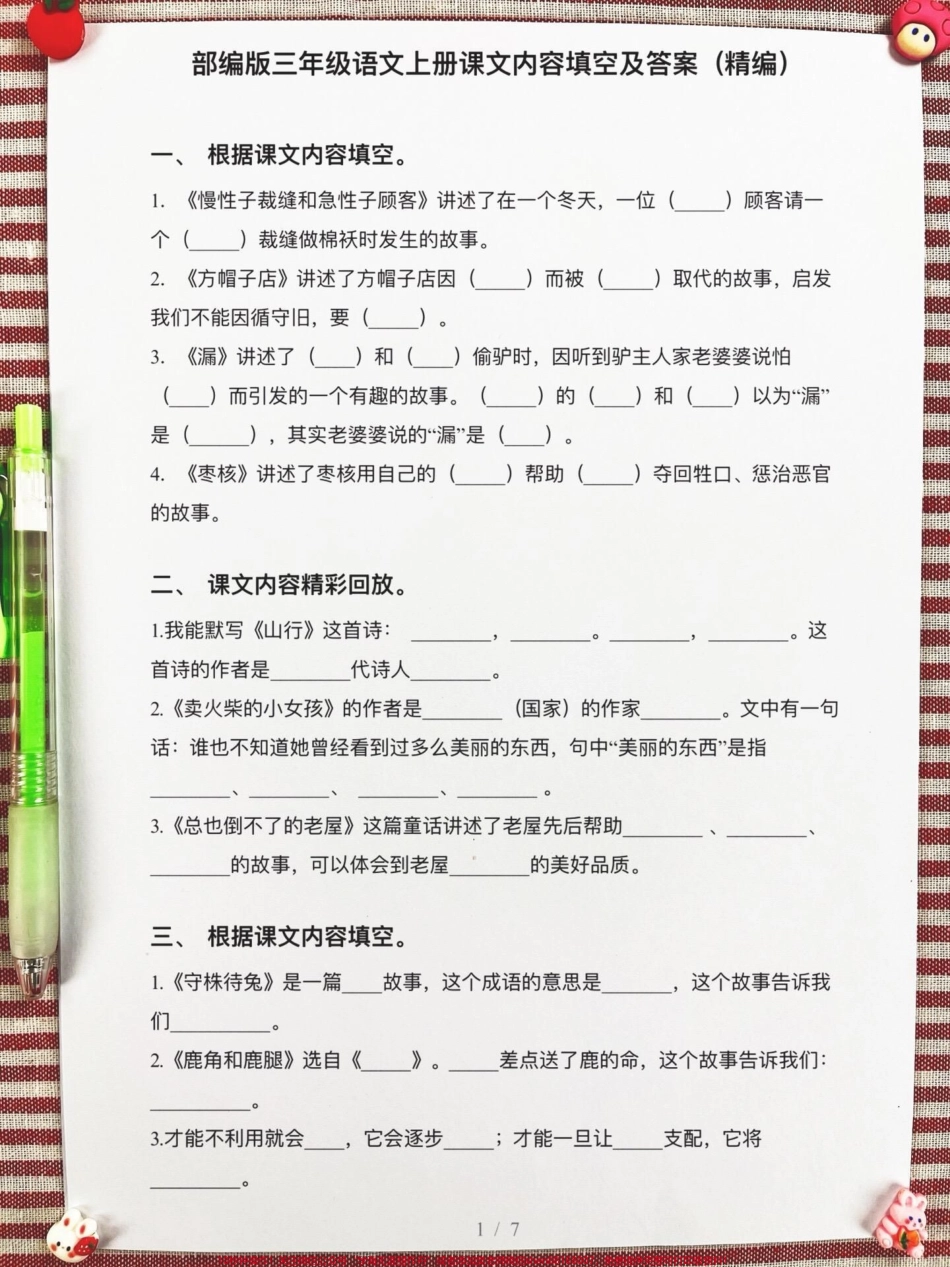 部编版三年级语文上册课文内容填空及答案（精编）
一、 根据课文内容填空。
1. 《慢性子裁缝和急性子顾客》讲述了在一个冬天，一位（_____）顾客请一
个（_____）裁缝做棉袄时发生的故事。
2. 《方帽子店》讲述了方帽子店因（_____）而被（_____）取代的故事，启发
我们不能因循守旧，要（_____）。
3. 《漏》讲述了（____）和（____）偷驴时，因听到驴主人家老婆婆说怕
（____）而引发的一个有趣的故事。（_____）的（____）和（____）以为“漏”
是（______），其实老婆婆说的“漏”是（____）。
4. 《枣核》讲述了枣核用自己的（_____）帮助（_____）夺回牲口、惩治恶官
的故事。
二、 课文内容精彩回放。
1.我能默写《山行》这首诗： ________，________。________，________。这
首诗的作者是________代诗人________。
2.《卖火柴的小女孩》的作者是________（国家）的作家________。文中有一句
话：谁也不知道她曾经看到过多么美丽的东西，句中“美丽的东西”是指
________、________、 ________、________ 。
3.《总也倒不了的老屋》这篇童话讲述了老屋先后帮助________ 、________、
________的故事，可以体会到老屋________的美好品质。
三、 根据课文内容填空。
1.《守株待兔》是一篇____故事，这个成语的意思是_______，这个故事告诉我
们__________。
2.《鹿角和鹿腿》选自《_____》。_____差点送了鹿的命，这个故事告诉我们：
__________。
3.才能不利用就会____，它会逐步_____；才能一旦让_____支配，它将
_________。
1 / 7